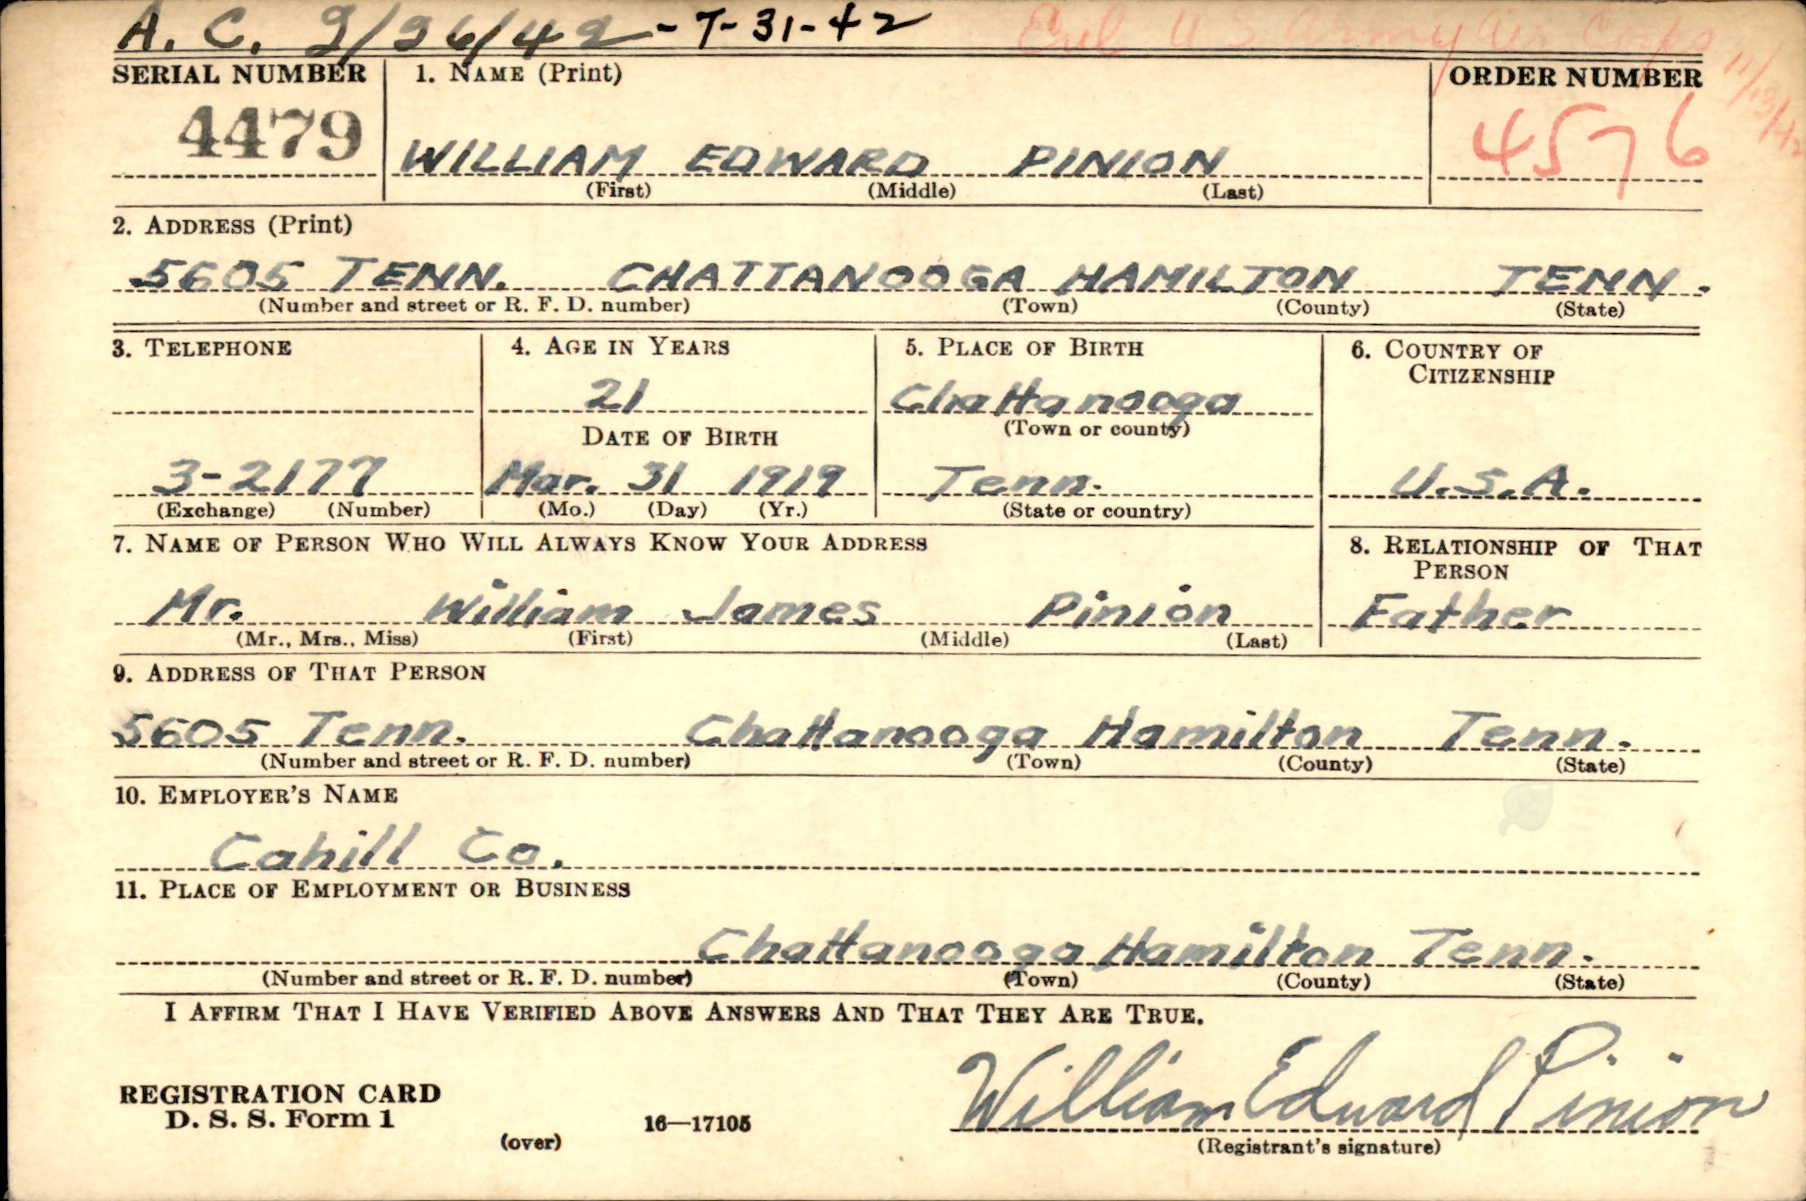 A. C. 2/26/42 - 7-31-42 Enl U S Army Air Corps 11/13/42
SERIAL NUMBER 1. NAME (Print) ORDER NUMBER
4479 WILLIAM EDWARD PINION 4576
(First) (Middle) (Last)
2. ADDRESS (Print)
5605 TENN. CHATTANOOGA HAMILTON TENN.
(Number and street or R. F. D. number) (Town) (County) (State)
3. TELEPHONE 4. AGE IN YEARS 5. PLACE OF BIRTH 6. COUNTRY OF CITIZENSHIP
21 Chattanooga
DATE OF BIRTH (Town or county)
3-2177 Mar. 31 1919 Tenn. U.S.A.
(Exchange) (Number) (Mo.) (Day) (Yr.) (State or country)
7. NAME OF PERSON WHO WILL ALWAYS KNOW YOUR ADDRESS 8. RELATIONSHIP OF THAT PERSON
Mr. William James Pinion Father
(Mr., Mrs., Miss) (First) (Middle) (Last)
9. ADDRESS OF THAT PERSON
5605 Tenn. Chattanooga Hamilton Tenn.
(Number and street or R. F. D. number) (Town) (County) (State)
10. EMPLOYER'S NAME
Cahill Co.
11. PLACE OF EMPLOYMENT OR BUSINESS
Chattanooga Hamilton Tenn.
(Number and street or R. F. D. number) (Town) (County) (State)
I AFFIRM THAT I HAVE VERIFIED ABOVE ANSWERS AND THAT THEY ARE TRUE.
William Edward Pinion
REGISTRATION CARD
D. S. S. Form 1 16—17105
(over) (Registrant's signature)